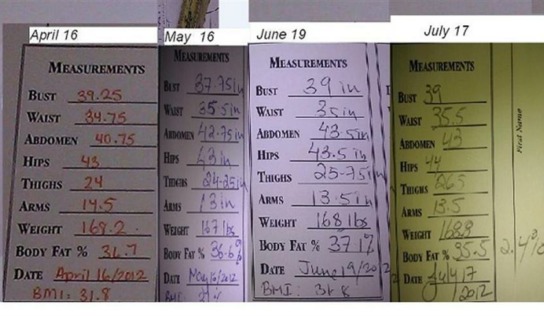 April 16
MEASUREMENTS
BUST 39.25
WAIST 34.75
ABDOMEN 40.75
HIPS 43
THIGHS 24
ARMS 14.5
WEIGHT 169.2
BODY FAT % 36.7
DATE April 16/2012
BMI: 31.8
May 16
MEASUREMENTS
BUST 37.75in
WAIST 35.5in
ABDOMEN 42.75in
HIPS 43in
THIGHS 24.25in
ARMS 13in
WEIGHT 167 lbs
BODY FAT % 36.6%
DATE May/16/2012
BMI:
June 19
MEASUREMENTS
BUST 39 in
WAIST 35in
ABDOMEN 43.5in
HIPS 43.5 in
THIGHS 25.75in
ARMS 13.5in
WEIGHT 168 lbs
BODY FAT % 37.1%
DATE June/19/20
BMI: 31.8
July 17
MEASUREMENTS
BUST 39
WAIST 35.5
ABDOMEN 43
HIPS 44
THIGHS 26.5
ARMS 13.5
WEIGHT 168.8
BODY FAT % 35.5
DATE July 17
2012
First Name
2.4%